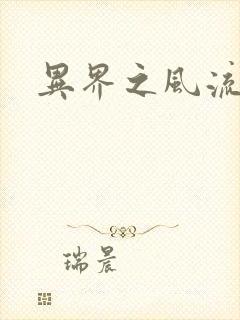 異界之風流
瑞晨